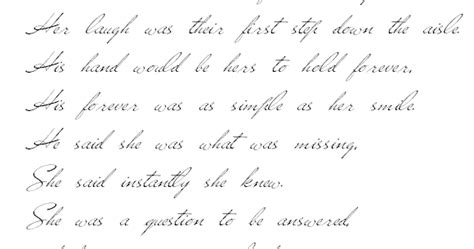 Her laugh was their first step down the aisle.
His hand would be hers to hold forever.
His forever was as simple as her smile.
He said she was what was missing.
She said instantly she knew.
She was a question to be answered,